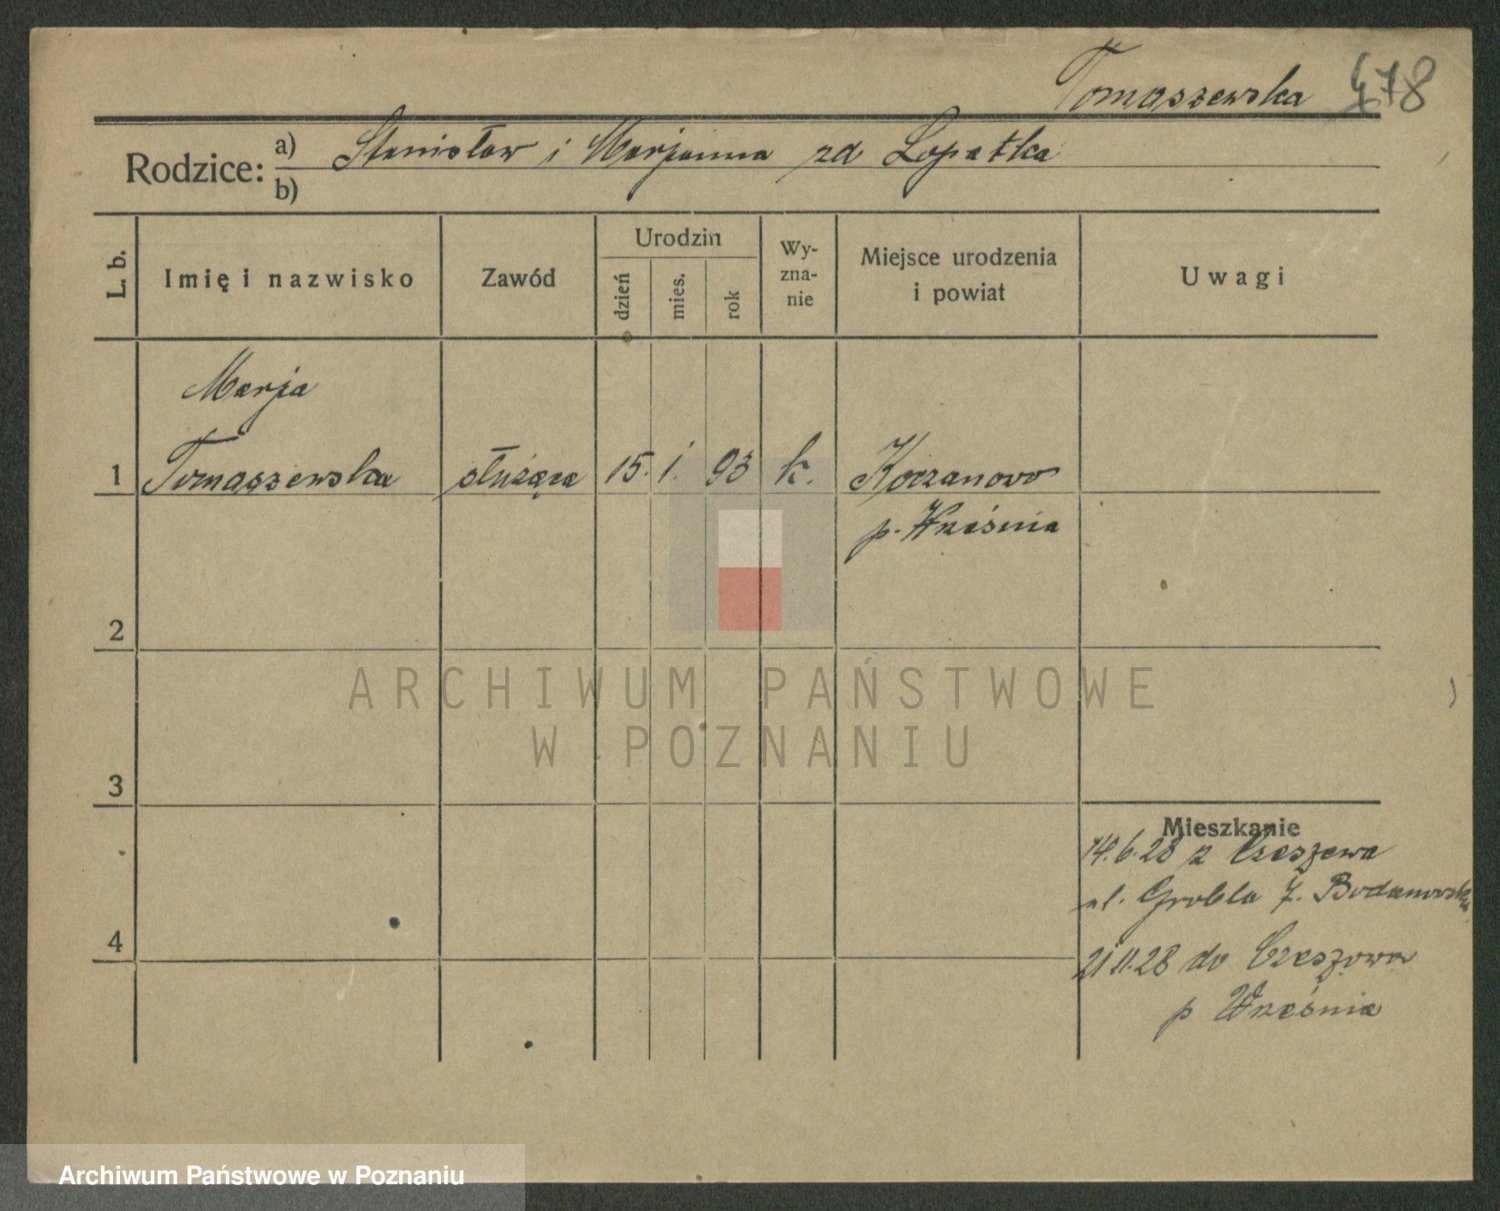 Tomaszewska 478
Rodzice: a) Stanisław i Marjanna zd Łopatka
b)
L. b.
Imię i nazwisko
Zawód
Urodzin
dzień
mies.
rok
Wy-
zna-
nie
Miejsce urodzenia
i powiat
Uwagi
Marja
1 Tomaszewska służąca 15. 1. 93 k. Kaczanowo
p. Września
2
ARCHIWUM PAŃSTWOWE
W POZNANIU
3
Mieszkanie
14.6.28 z Czeszewa
ul. Grobla 7. Bodanowska
4
21 11.28 do Czeszewa
p Września
Archiwum Państwowe w Poznaniu